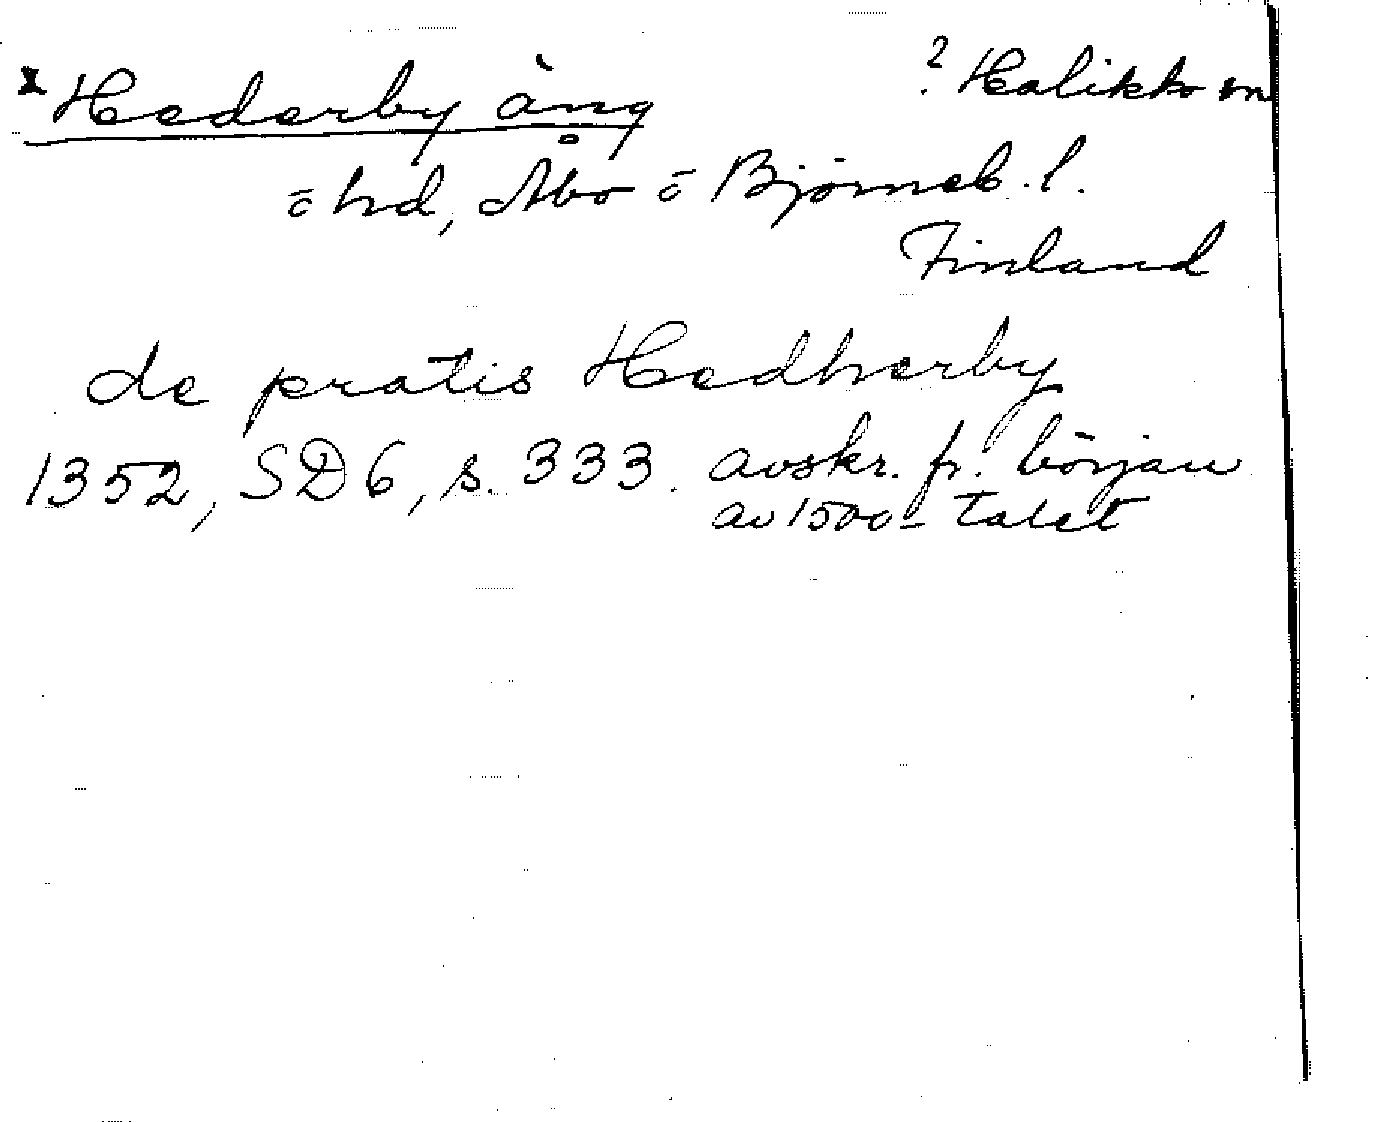 x Hederby äng ? Halikko sn
o hd, Åbo o Björneb. l.
Finland
de pratis Hedherby
1352, SD6, s. 333. avskr. fr. början
av 1500-talet